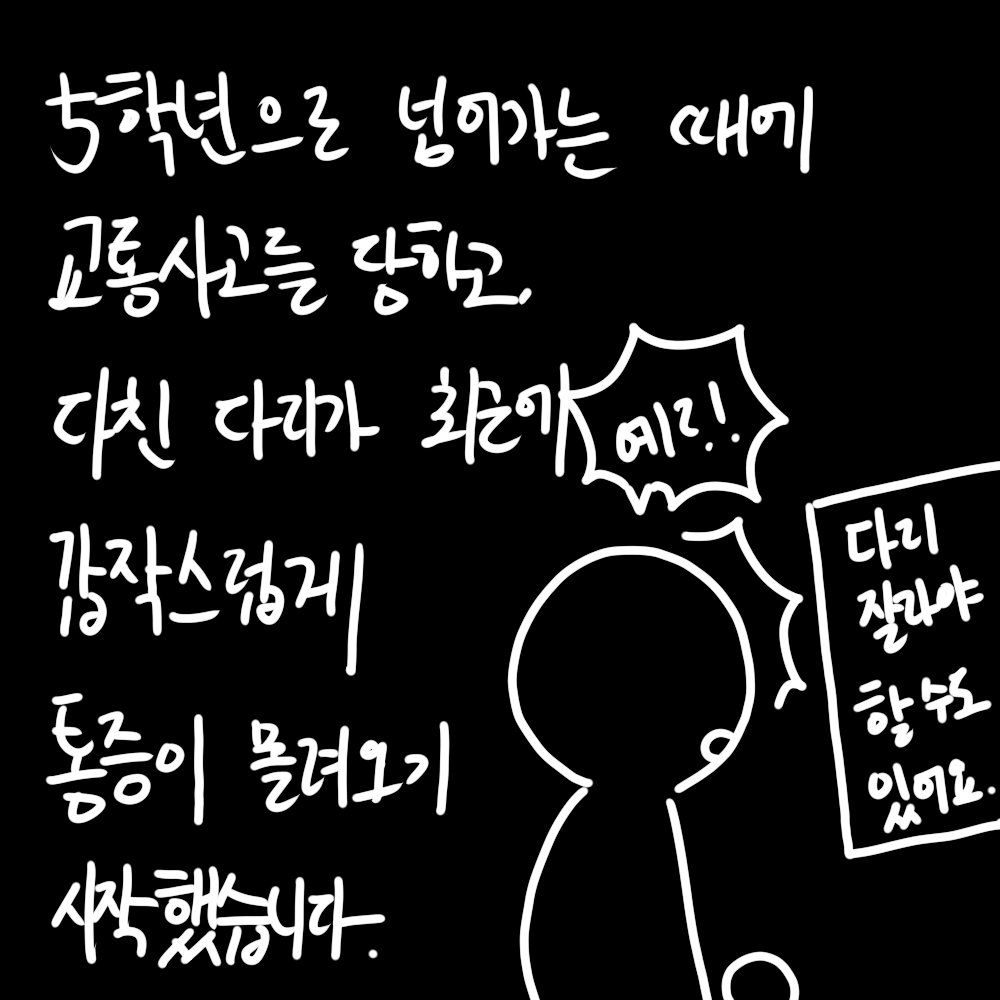 5학년으로 넘어가는 때에
교통사고를 당하고,
다친 다리가 최근에
갑작스럽게
통증이 몰려오기
시작했습니다.
예?!
다리
잘라야
할 수도
있어요.